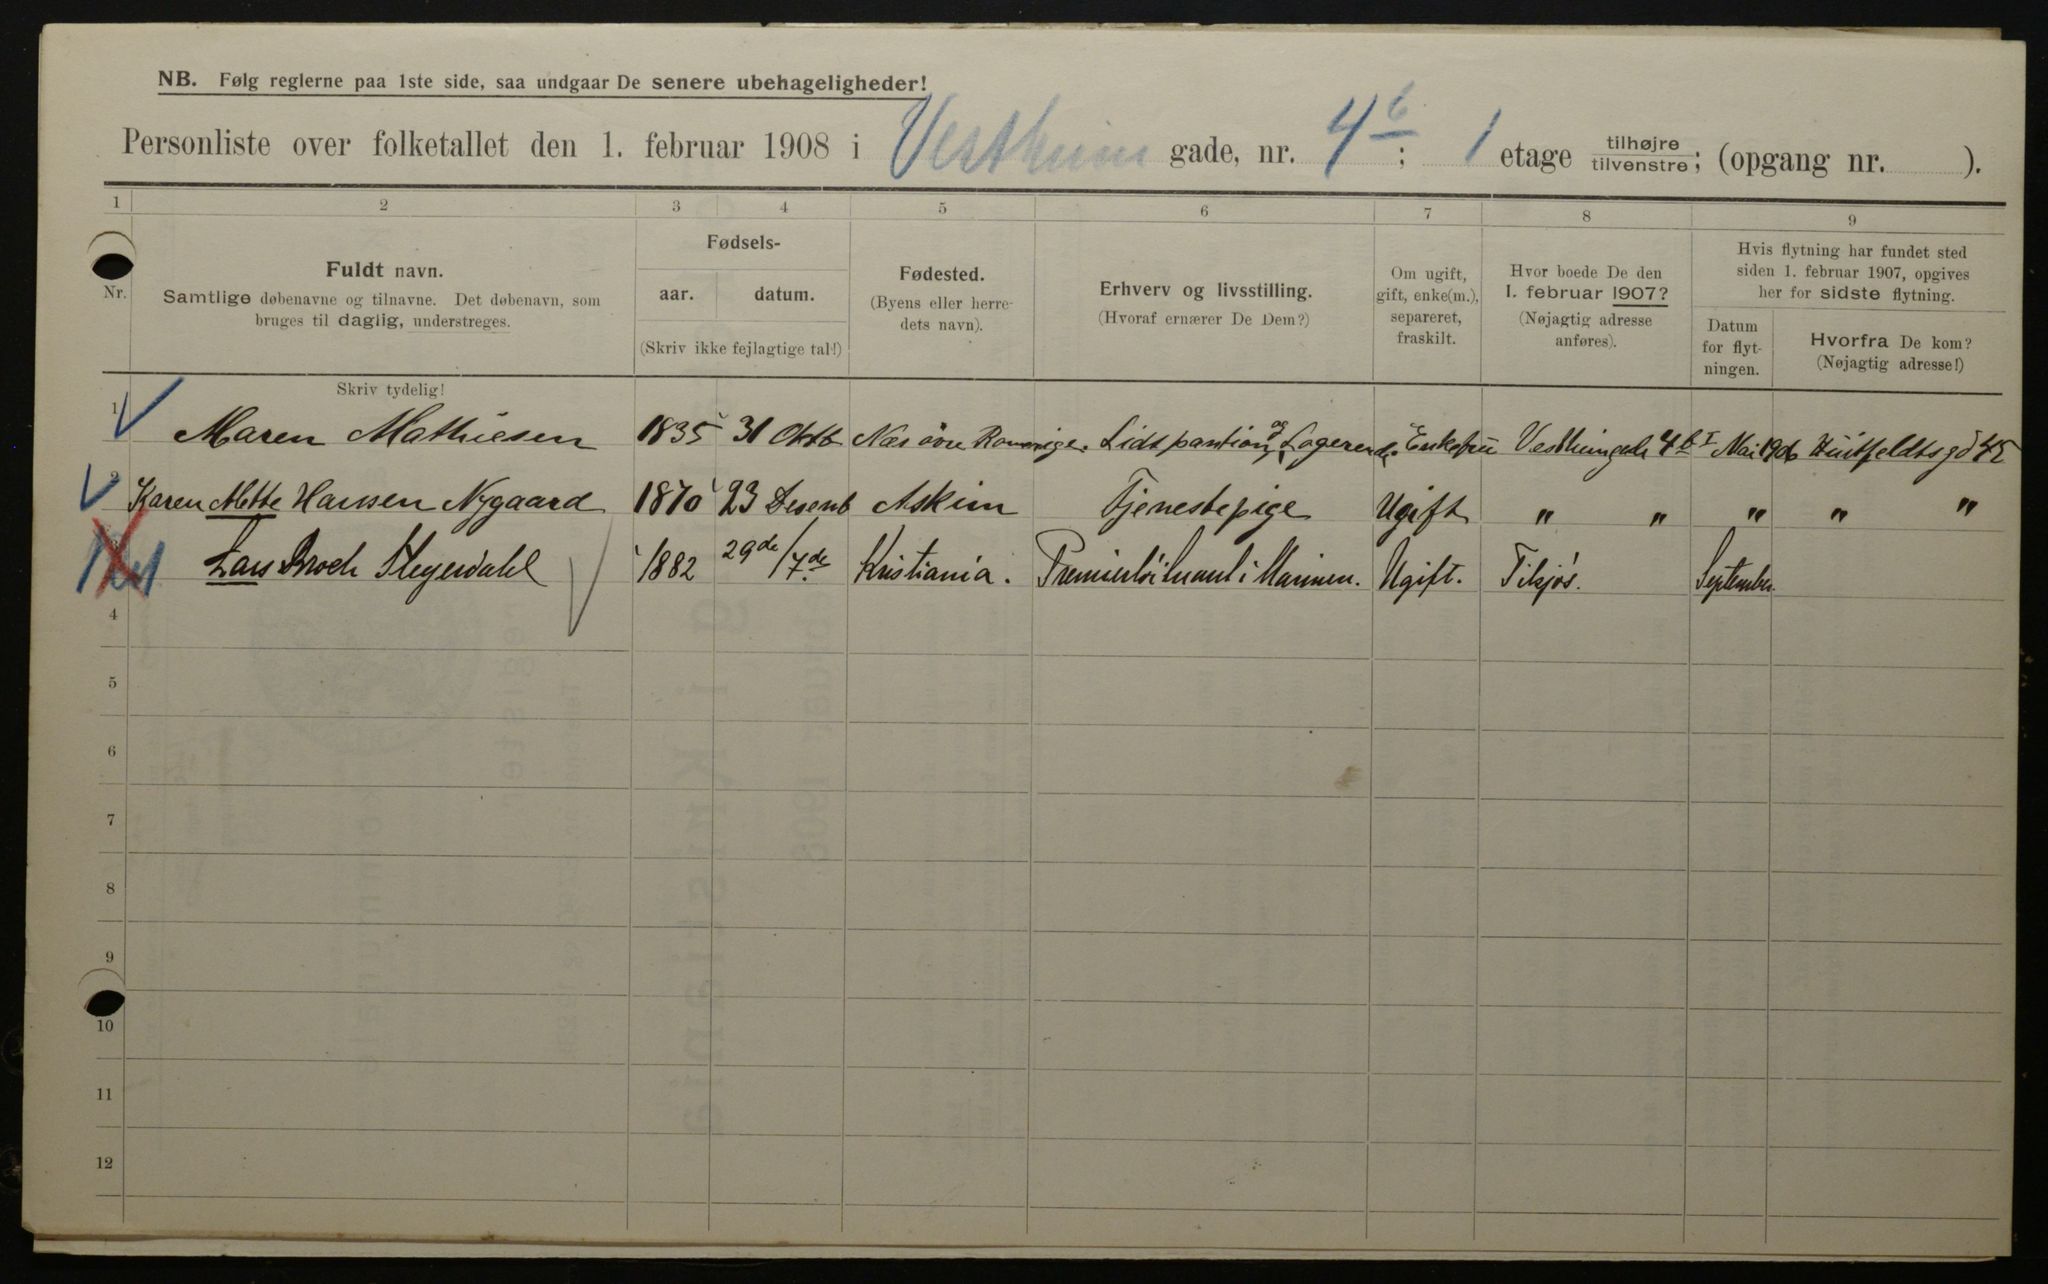 NB. Følg reglerne paa 1ste side, saa undgaar De senere ubehageligheder!
Personliste over folketallet den 1. februar 1908 i Vestheim gade, nr. 4b; 1 etage tilhøjre tilvenstre; (opgang nr. ).
1 2 3 4 5 6 7 8 9
Nr.
Fuldt navn.
Samtlige døbenavne og tilnavne. Det døbenavn, som
bruges til daglig, understreges.
Fødsels-
aar. datum.
(Skriv ikke fejlagtige tal!)
Fødested.
(Byens eller herre-
dets navn).
Erhverv og livsstilling.
(Hvoraf ernærer De Dem?)
Om ugift,
gift, enke(m.),
separeret,
fraskilt.
Hvor boede De den
1. februar 1907?
(Nøjagtig adresse
anføres).
Hvis flytning har fundet sted
siden 1. februar 1907, opgives
her for sidste flytning.
Datum
for flyt-
ningen.
Hvorfra De kom?
(Nøjagtig adresse!)
Skriv tydelig!
1 Maren Mathiesen 1835 31 Oktb Næs øvre Romerige. og Enkefru 4b I Mai 1906 Huitfeldtsgd 45
2 Karen Mette Hansen Nygaard 1870 23 Desemb Askim Tjenestepige Ugift " " " " "
3 Lars Broch 1882 29de/7de Kristiania. Premierløitnant i Marinen. Ugift. Tilsjøs. September.
4
5
6
7
8
9
10
11
12